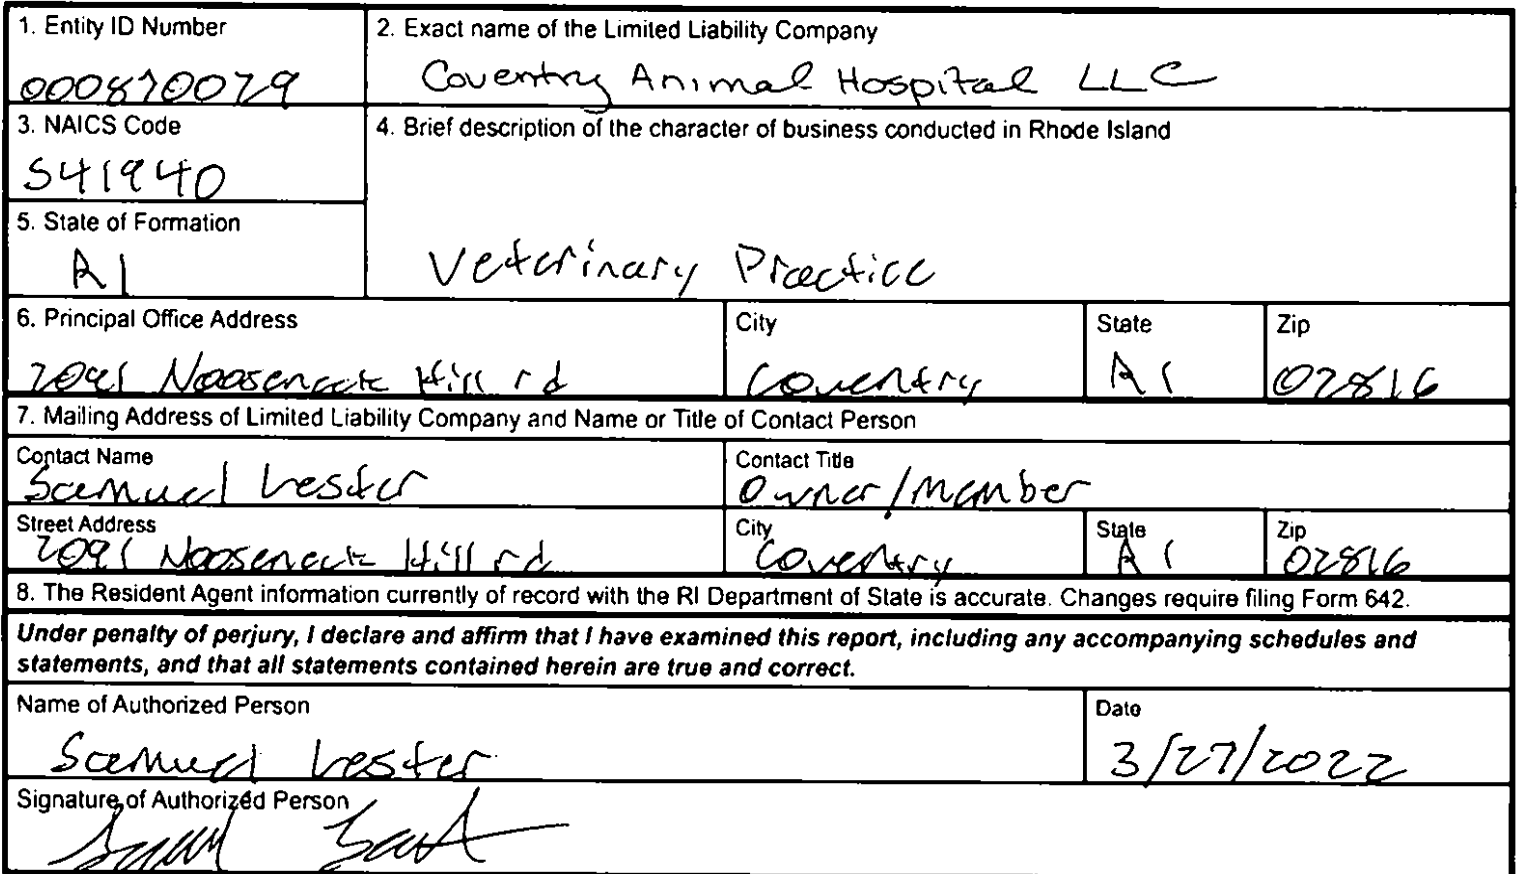 1. Entity ID Number
000870079
2. Exact name of the Limited Liability Company
Coventry Animal Hospital LLC
3. NAICS Code
541940
4. Brief description of the character of business conducted in Rhode Island
Veterinary Practice
5. State of Formation
RI
6. Principal Office Address
2091 Nooseneck Hill rd
City
Coventry
State
RI
Zip
02816
7. Mailing Address of Limited Liability Company and Name or Title of Contact Person
Contact Name
Samuel Lester
Contact Title
Owner/Member
Street Address
2091 Nooseneck Hill rd
City
Coventry
State
RI
Zip
02816
8. The Resident Agent information currently of record with the RI Department of State is accurate. Changes require filing Form 642.
Under penalty of perjury, I declare and affirm that I have examined this report, including any accompanying schedules and
statements, and that all statements contained herein are true and correct.
Name of Authorized Person
Samuel Lester
Date
3/27/2022
Signature of Authorized Person